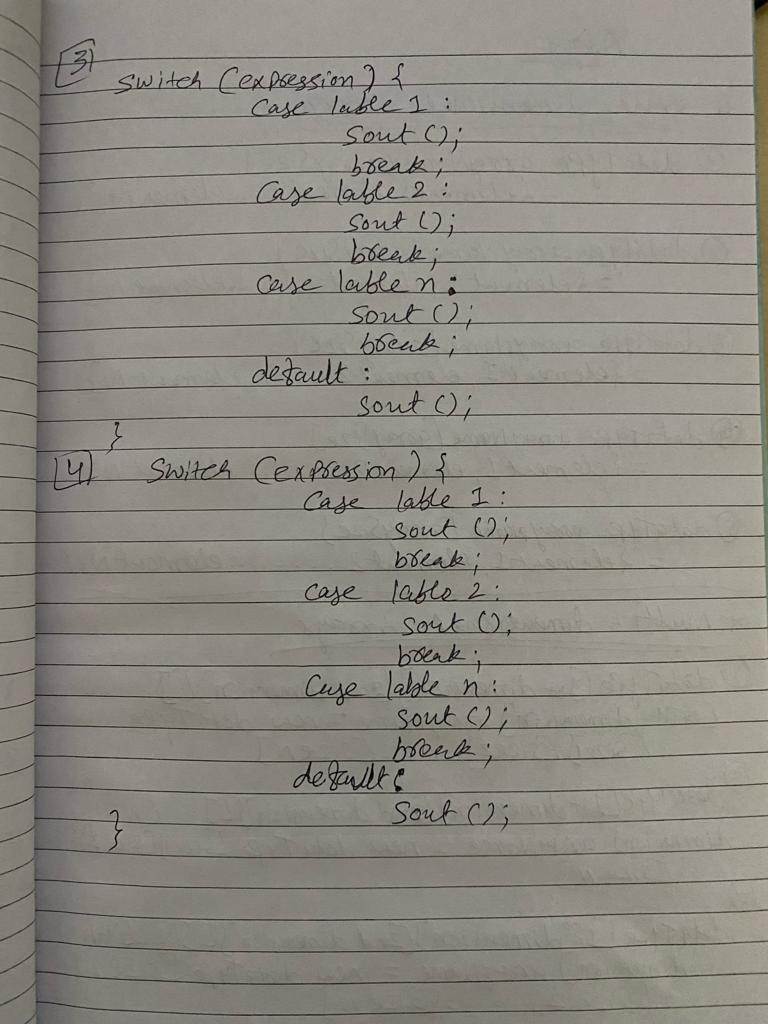 3)
switch (expression) {
case lable 1 :
sout ();
break;
case lable 2 :
sout ();
break;
case lable n :
sout ();
break;
default :
sout ();
}
4) switch (expression) {
case lable 1 :
sout ();
break;
case lable 2 :
sout ();
break;
case lable n :
sout ();
break;
default :
sout ();
}